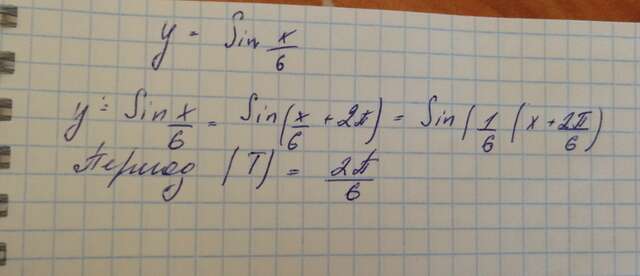 y = Sin x/6
y = Sin x/6 = Sin(x/6 + 2π) = Sin(1/6(x + 2π/6)
Период (T) = 2π/6